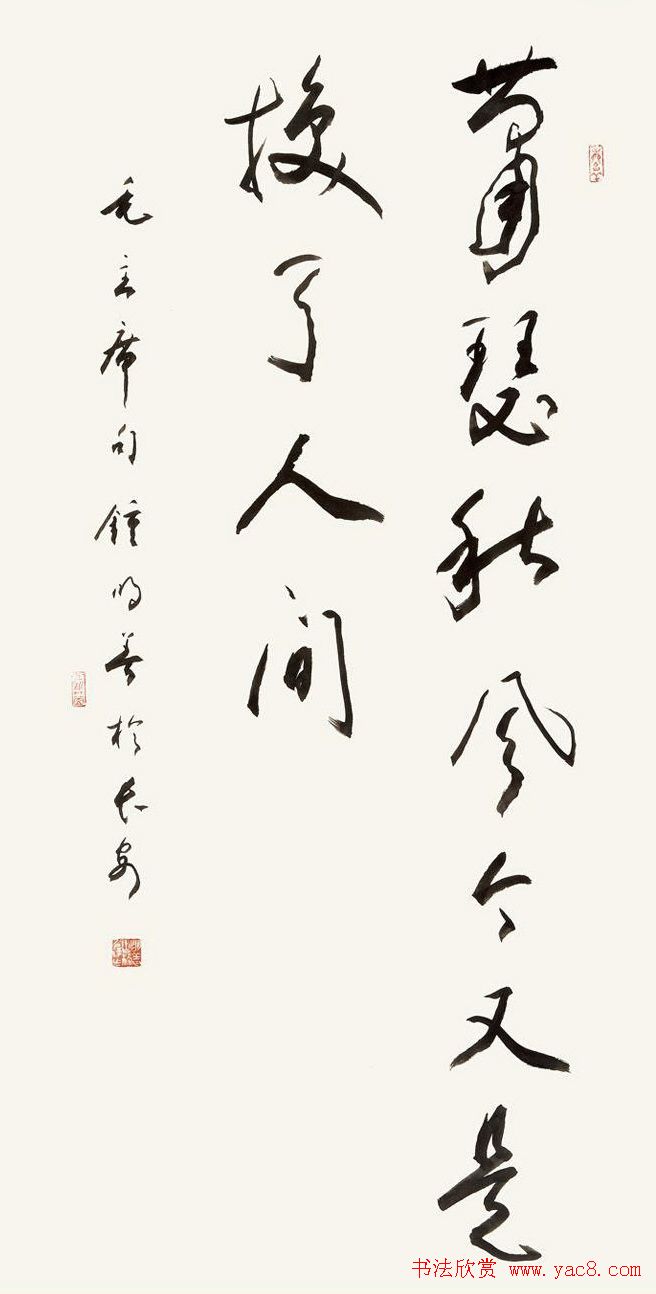 萧瑟秋风今又是
换了人间
毛主席句 鍾明善於长安
书法欣赏 www.yac8.com